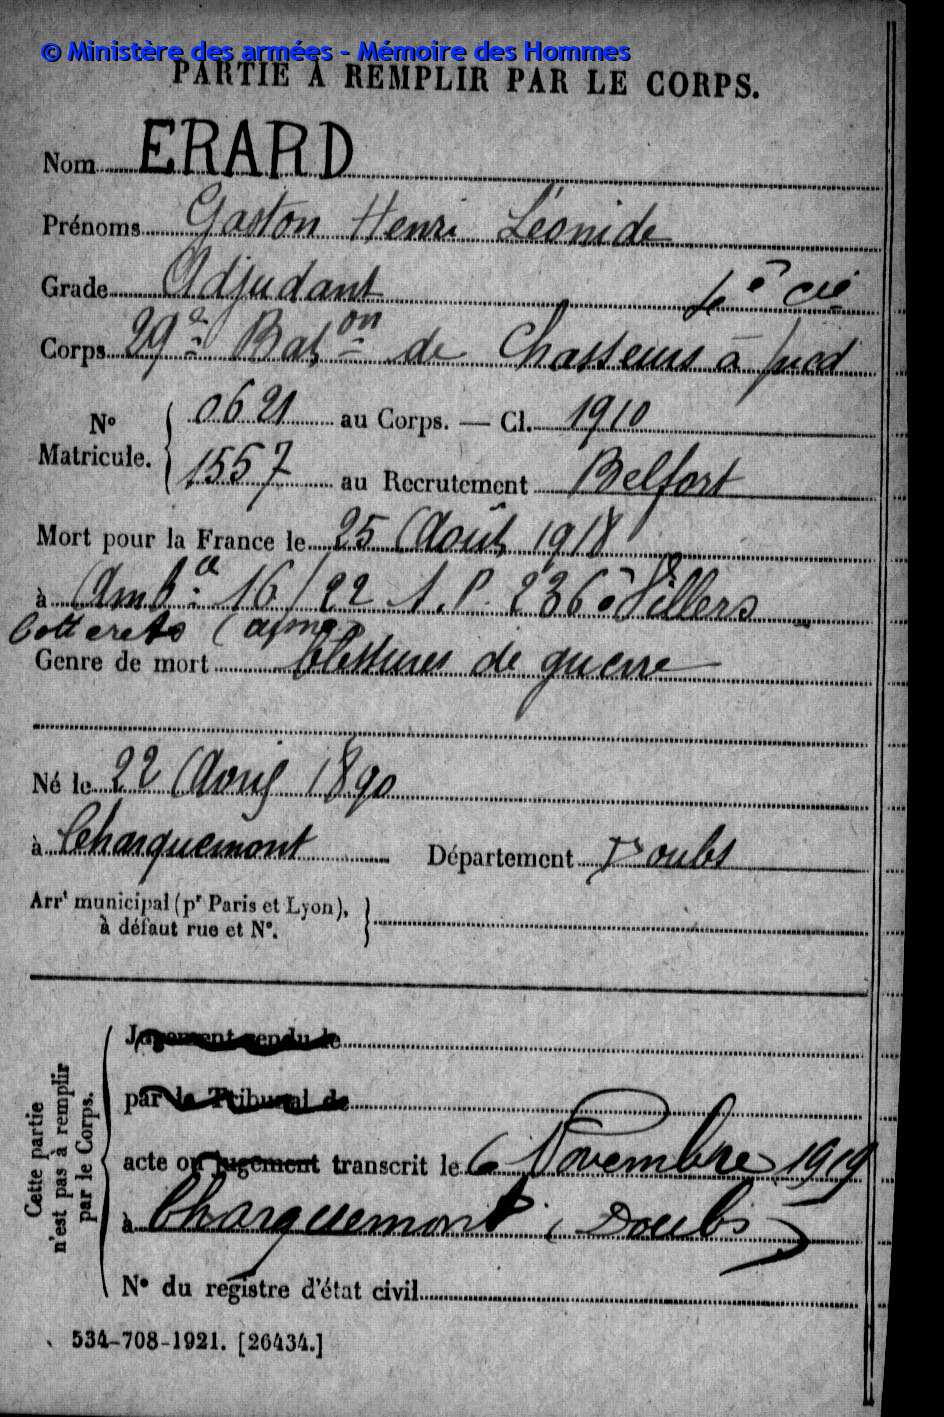 © Ministère des armées - Mémoire des Hommes
PARTIE À REMPLIR PAR LE CORPS.
Nom ERARD
Prénoms Gaston Henri Léonide
Grade Adjudant 1è cie
Corps 29e Baton de Chasseurs à pied
No Matricule. { 0621 au Corps. — Cl. 1910
1557 au Recrutement Belfort
Mort pour la France le 25 Août 1918
à Ambce 16/22 S.P. 236 à Villers
Cotterets (aisne)
Genre de mort blessures de guerre
Né le 22 Avril 1890
à Charquemont Département Doubs
Arrt municipal (pr Paris et Lyon),
à défaut rue et No.
Cette partie
n'est pas à remplir
par le Corps.
Jugement rendu le
par le Tribunal de
acte ou jugement transcrit le 6 Novembre 1919
à Charquemont (Doubs)
No du registre d'état civil
534-708-1921. [26434.]